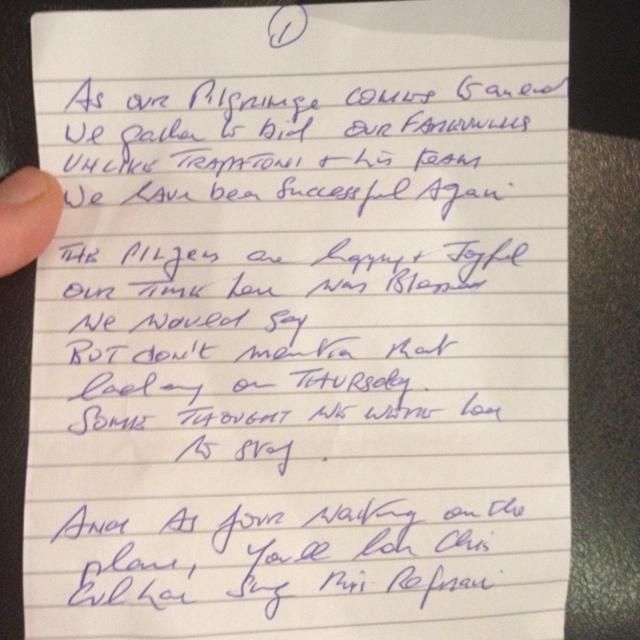 1
As our Pilgrimage comes to an end
We gather to bid our farewells
Unlike Trapatoni + his team
We have been Successful Again
The Pilgrims are happy + Joyful
Our Time here was Blessed
We would say
But don't mention that
on Thursday.
Some thought we were here
to stay.
And As your waiting on the
plane, You'll hear Chris
Sing this Refrain